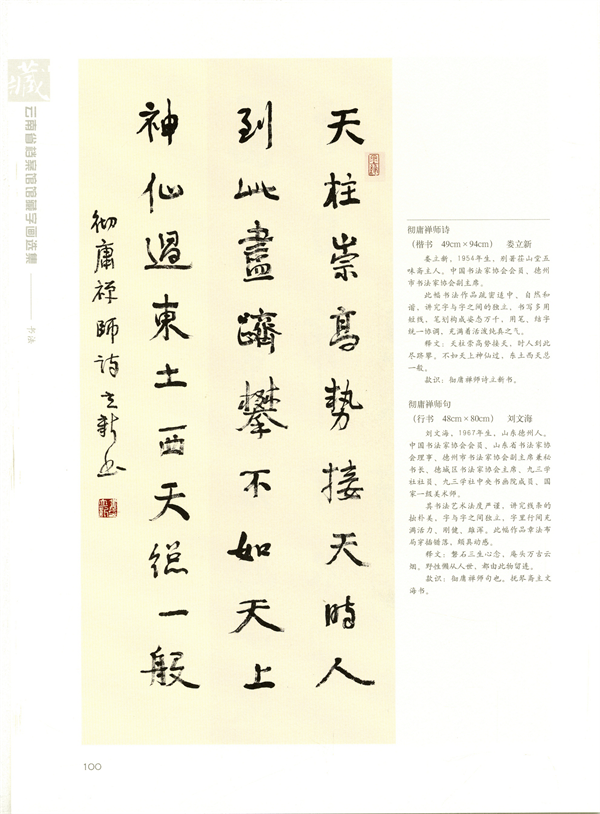 藏
云南省档案馆馆藏字画选集 —— 书法
天柱崇高勢接天時人
到此盡躋攀不如天上
神仙過東土西天總一般
彻庸禅師詩立新书
彻庸禅师诗
（楷书 49cm×94cm） 娄立新
娄立新，1954年生，别署茌山堂五
味斋主人，中国书法家协会会员、德州
市书法家协会副主席。
此幅书法作品疏密适中、自然和
谐，讲究字与字之间的独立，书写多用
短线，笔划构成姿态万千。用笔、结字
统一协调，充满着活泼纯真之气。
释文：天柱崇高势接天，时人到此
尽跻攀。不如天上神仙过，东土西天总
一般。
款识：彻庸禅师诗立新书。
彻庸禅师句
（行书 48cm×80cm） 刘文海
刘文海，1967年生，山东德州人。
中国书法家协会会员、山东省书法家协
会理事、德州市书法家协会副主席兼秘
书长、德城区书法家协会主席、九三学
社社员、九三学社中央书画院成员、国
家一级美术师。
其书法艺术法度严谨，讲究线条的
按朴美，字与字之间独立，字里行间充
满活力，刚健、雄深。此幅作品章法布
局穿插错落，颇具动感。
释文：磐石三生心念，庵头万古云
烟。野性懒从人世，都由此物留连。
款识：彻庸禅师句也。抚琴斋主文
海书。
100